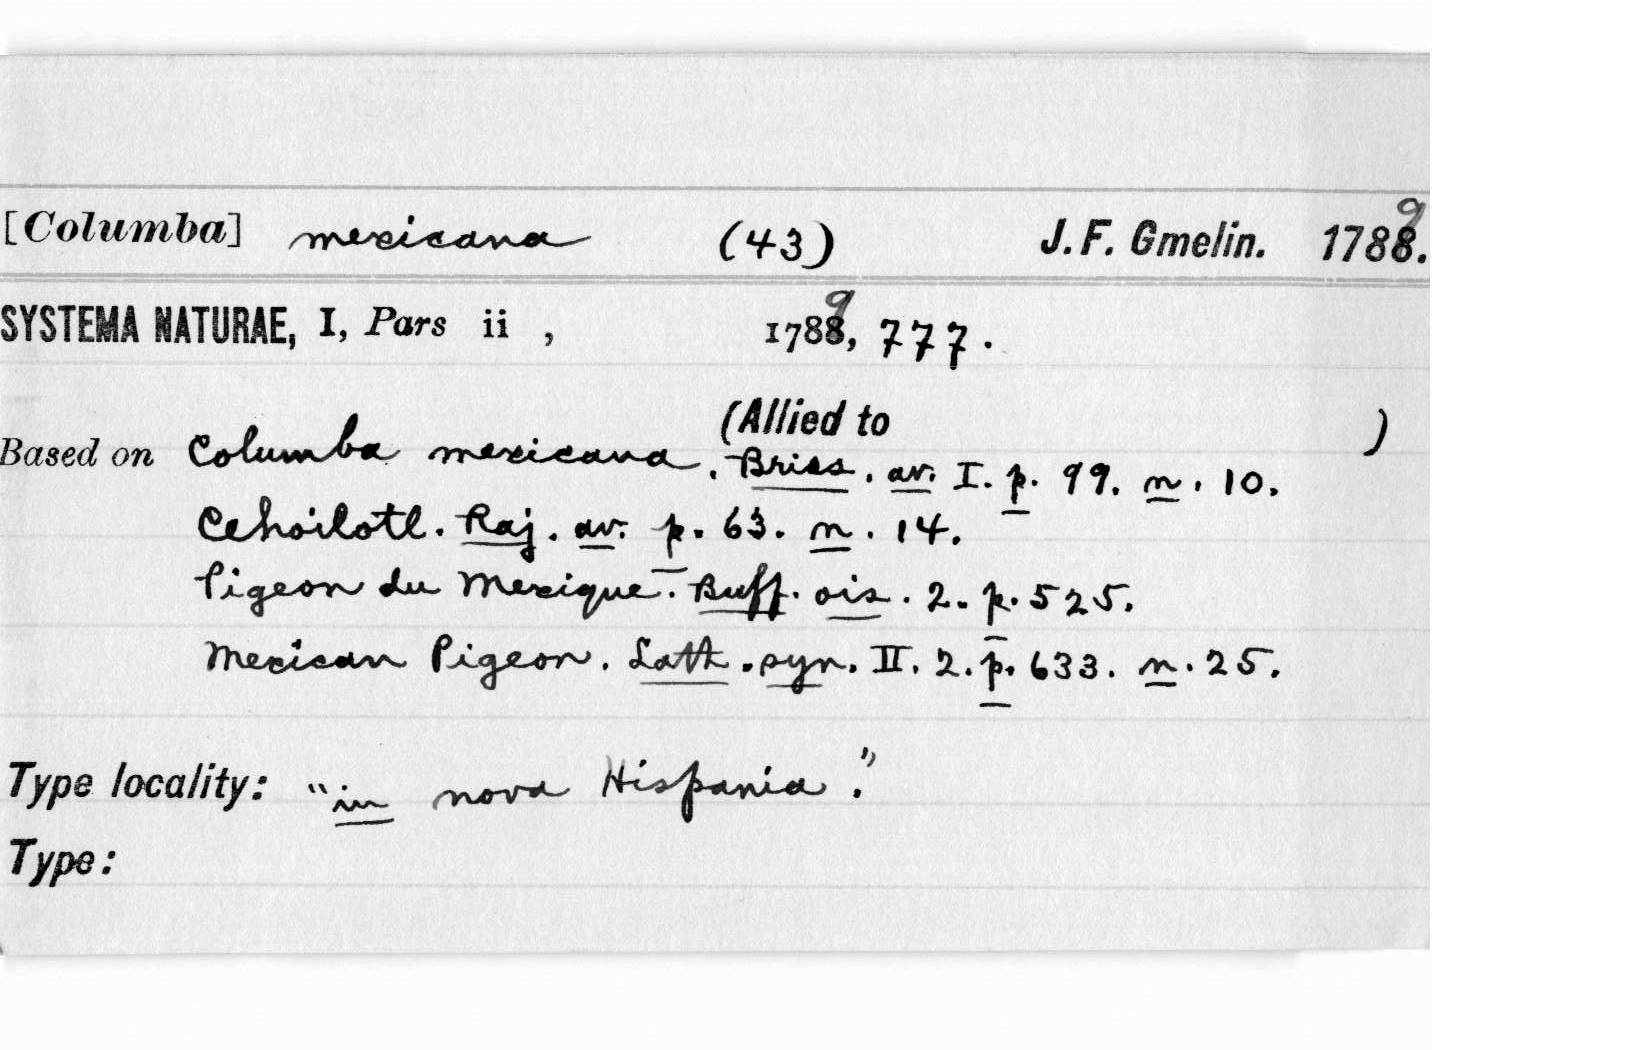 [Columba] mexicana (43) J. F. Gmelin. 1789.
SYSTEMA NATURAE, I, Pars ii , 1789, 777.
(Allied to )
Based on Columba mexicana. Briss. av. I. p. 99. n. 10.
Cehoilotl. Raj. av. p. 63. n. 14.
Pigeon du Mexique. Buff. ois. 2. p. 525.
Mexican Pigeon. Lath. syn. II. 2. p. 633. n. 25.
Type locality: "in nova Hispania."
Type: